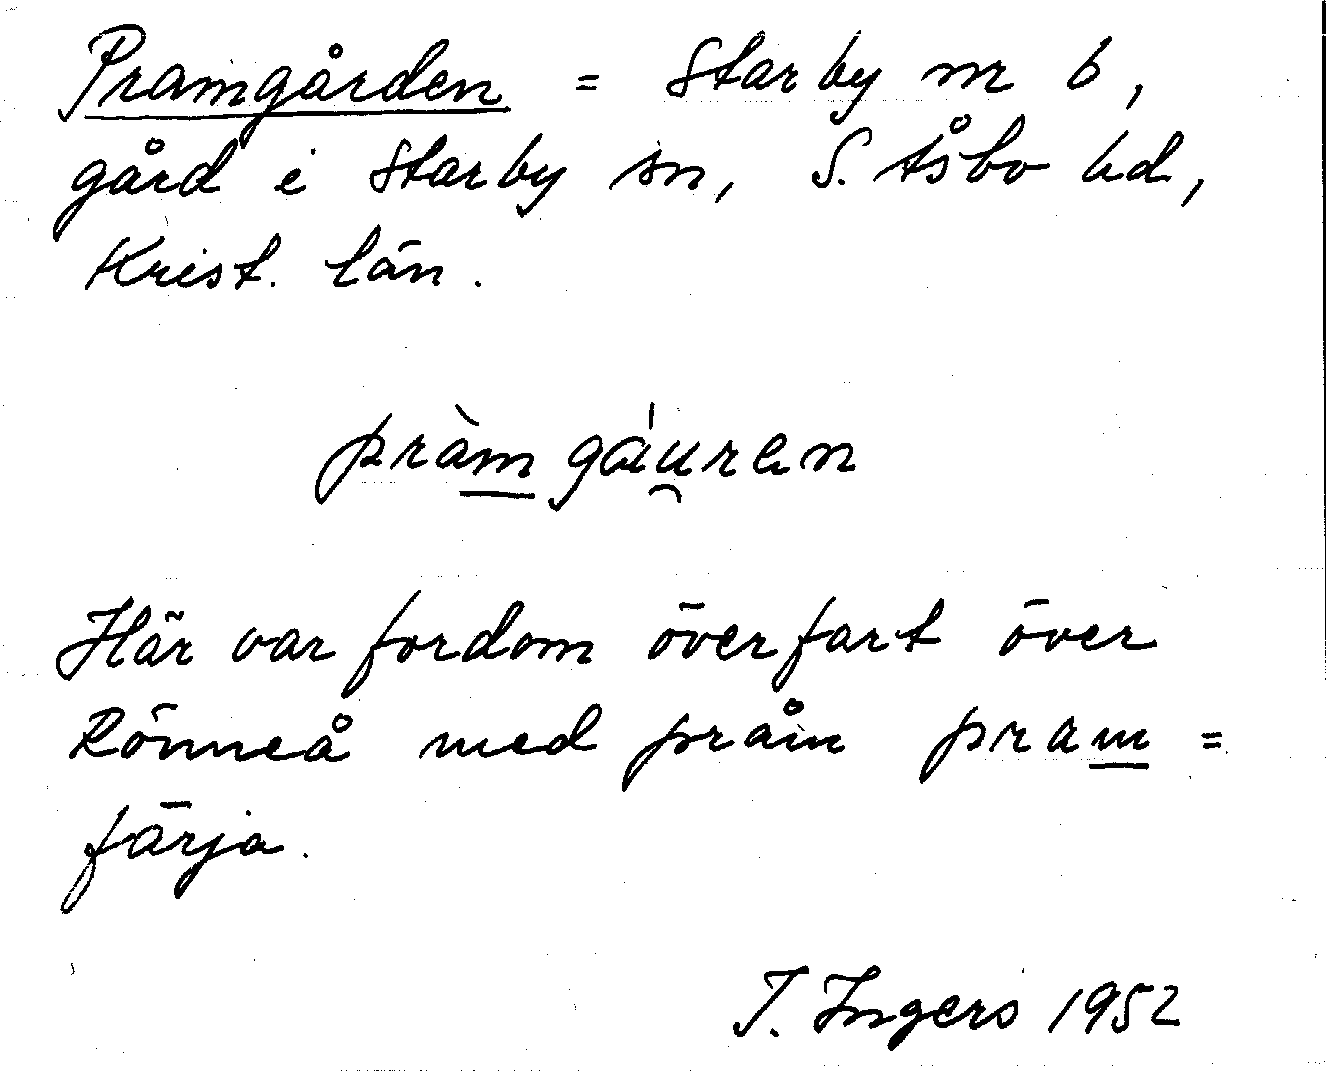 Pramgården = Starby nr 6,
gård i Starby sn, S. Åsbo hd,
Krist. län.
pràmgáu̯ren
Här var fordom överfart över
Rönneå med pråm pram =
färja.
I. Ingers 1952